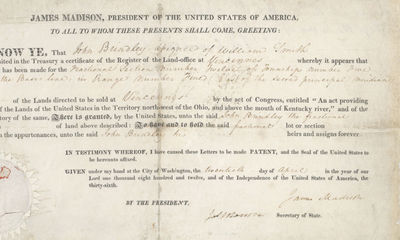 JAMES MADISON, PRESIDENT OF THE UNITED STATES OF AMERICA,
TO ALL TO WHOM THESE PRESENTS SHALL COME, GREETING:
NOW YE, That John Brindley assignee of William Smith
ited in the Treasury a certificate of the Register of the Land-office at Vincennes whereby it appears that
has been made for the Fractional Section Number of Township number
the Base line, in Range Number East of the second principal meridian
of the Lands directed to be sold at Vincennes by the act of Congress, entitled "An act providing
f the Lands of the United States in the Territory north-west of the Ohio, and above the mouth of Kentucky river," and of the
tory of the same, There is granted, by the United States, unto the said John Brindley the fractional
lot or section of land above described: To have and to hold the said fractional lot or section
h the appurtenances, unto the said John Brindley his heirs and assigns forever.
IN TESTIMONY WHEREOF, I have caused these Letters to be made PATENT, and the Seal of the United States to
be hereunto affixed.
GIVEN under my hand at the City of Washington, the twentieth day of April in the year of our
Lord one thousand eight hundred and twelve, and of the Independence of the United States of America, the
thirty-sixth.
James Madison
BY THE PRESIDENT,
Secretary of State.